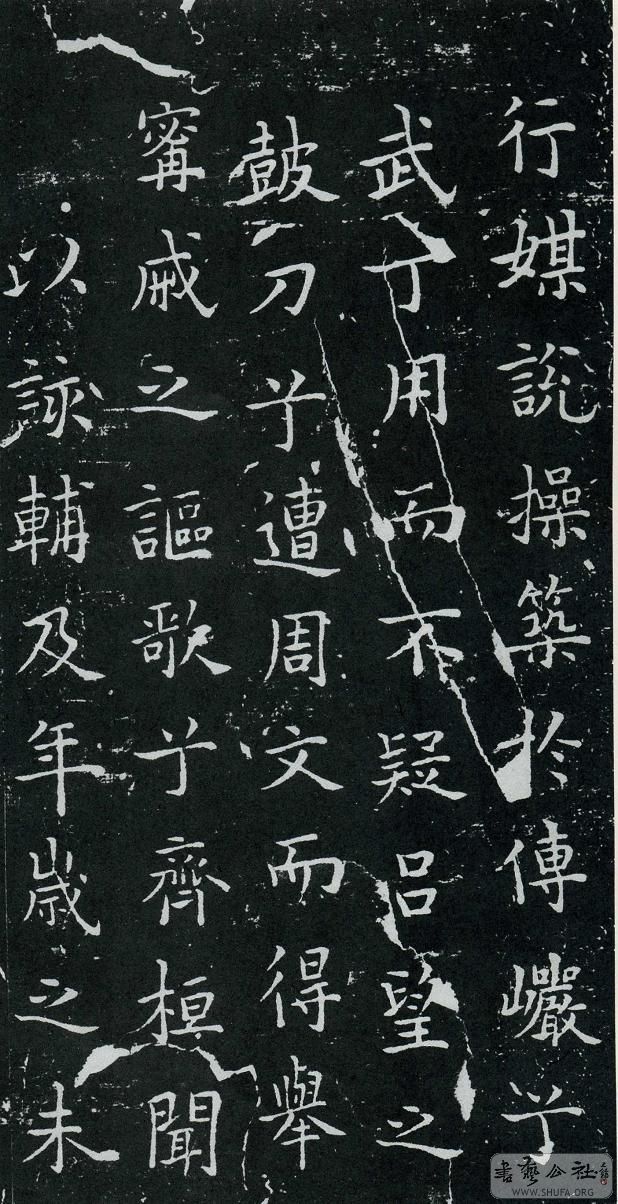 行媒說操築於傅巖兮
武丁用而不疑呂望之
鼓刀兮遭周文而得舉
甯戚之謳歌兮齊桓聞
以該輔及年歲之未
書藝公社
WWW.SHUFA.ORG